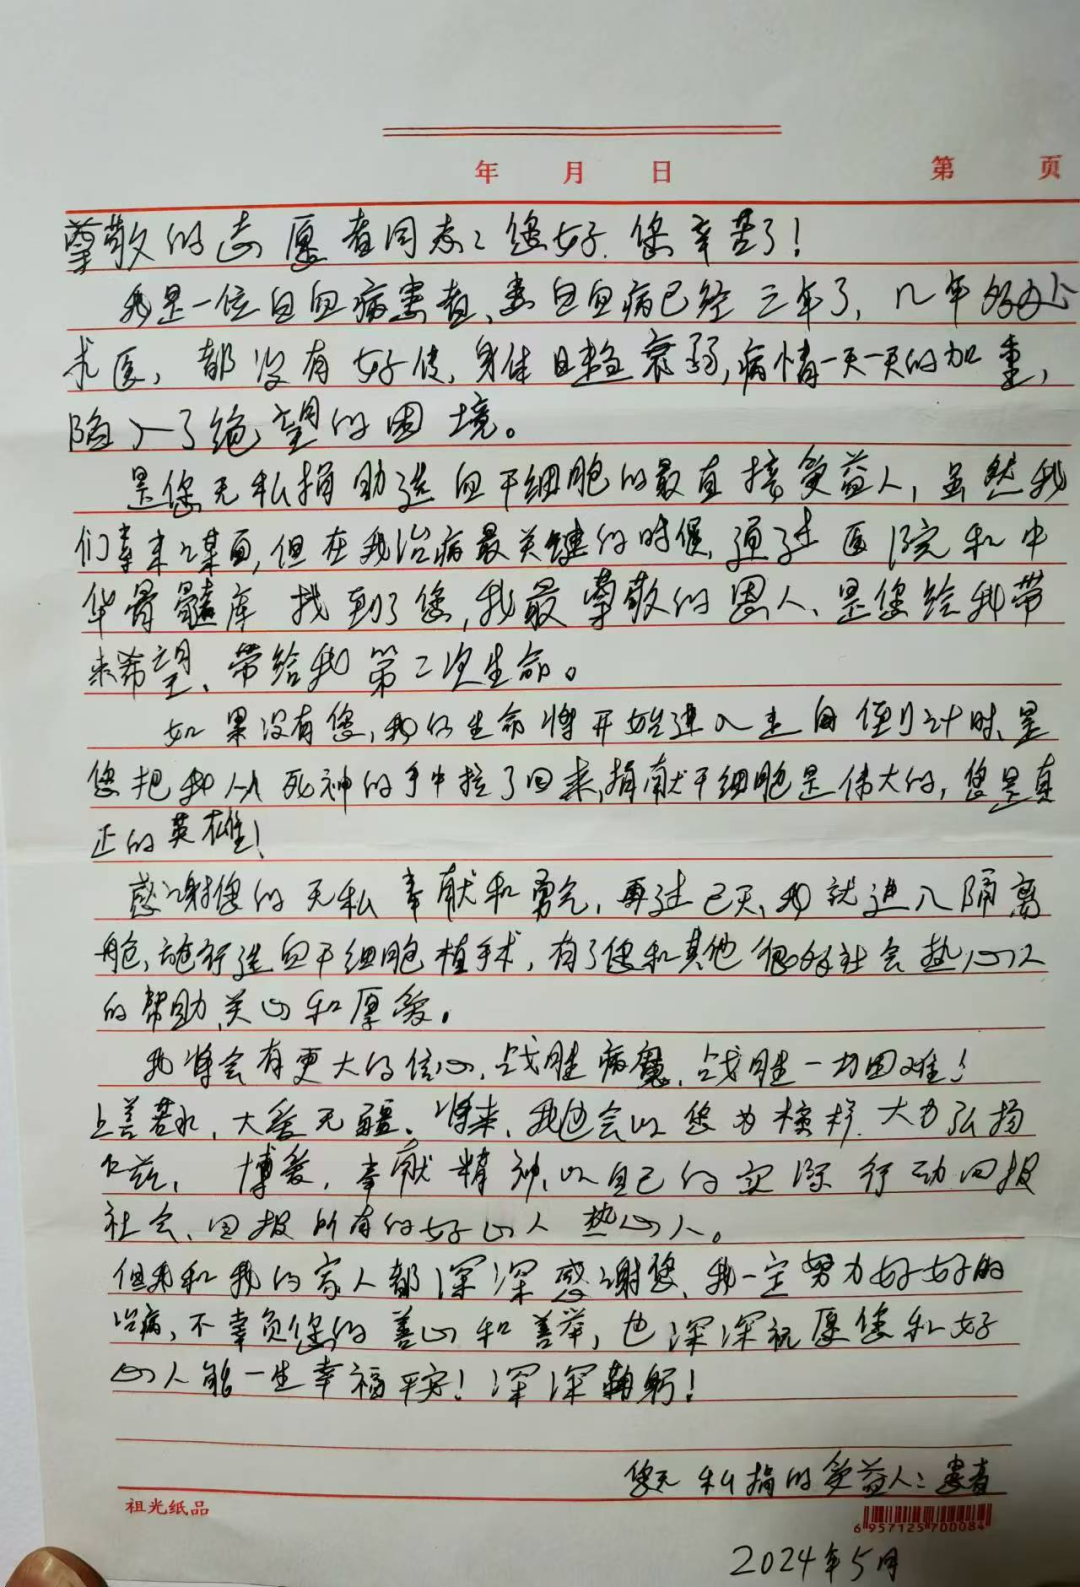 年 月 日 第 页
尊敬的志愿者同志：您好.您辛苦了！
我是一位白血病患者、患白血病已经三年了，几年的
求医，都没有好传，身体日趋衰弱，病情一天一天的加重，
陷入了绝望的困境。
是您无私捐助造血干细胞的最直接受益人，虽然我
们素未谋面，但在我治病最关键的时候，通过医院和中
华骨髓库找到了您，我最尊敬的恩人、是您给我带
来希望、带给我第二次生命。
如果没有您，我的生命将开始进入倒计时、是
您把我从死神的手中拉了回来，捐献干细胞是伟大的，您是真
正的英雄！
感谢您的无私奉献和勇气，再过已天，我就进入隔离
舱，造血干细胞植手术，有了您和其他很好社会热心人
的帮助、关心和厚爱。
我将会有更大的信心，战胜病魔，战胜一切困难！
上善若水，大爱无疆。将来，我也会以您为榜样.大力弘扬
仁慈，博爱，奉献精神，以自己的实际行动回报
社会、回报所有的好心人热心人。
但我和我的家人都深深感谢您，我一定努力好好的
治病，不辜负您的善心和善举，也深深祝愿您和好
心人能一生幸福平安！深深鞠躬！
您无私捐的受益人：患者
祖光纸品
6 957125 700084
2024年5月